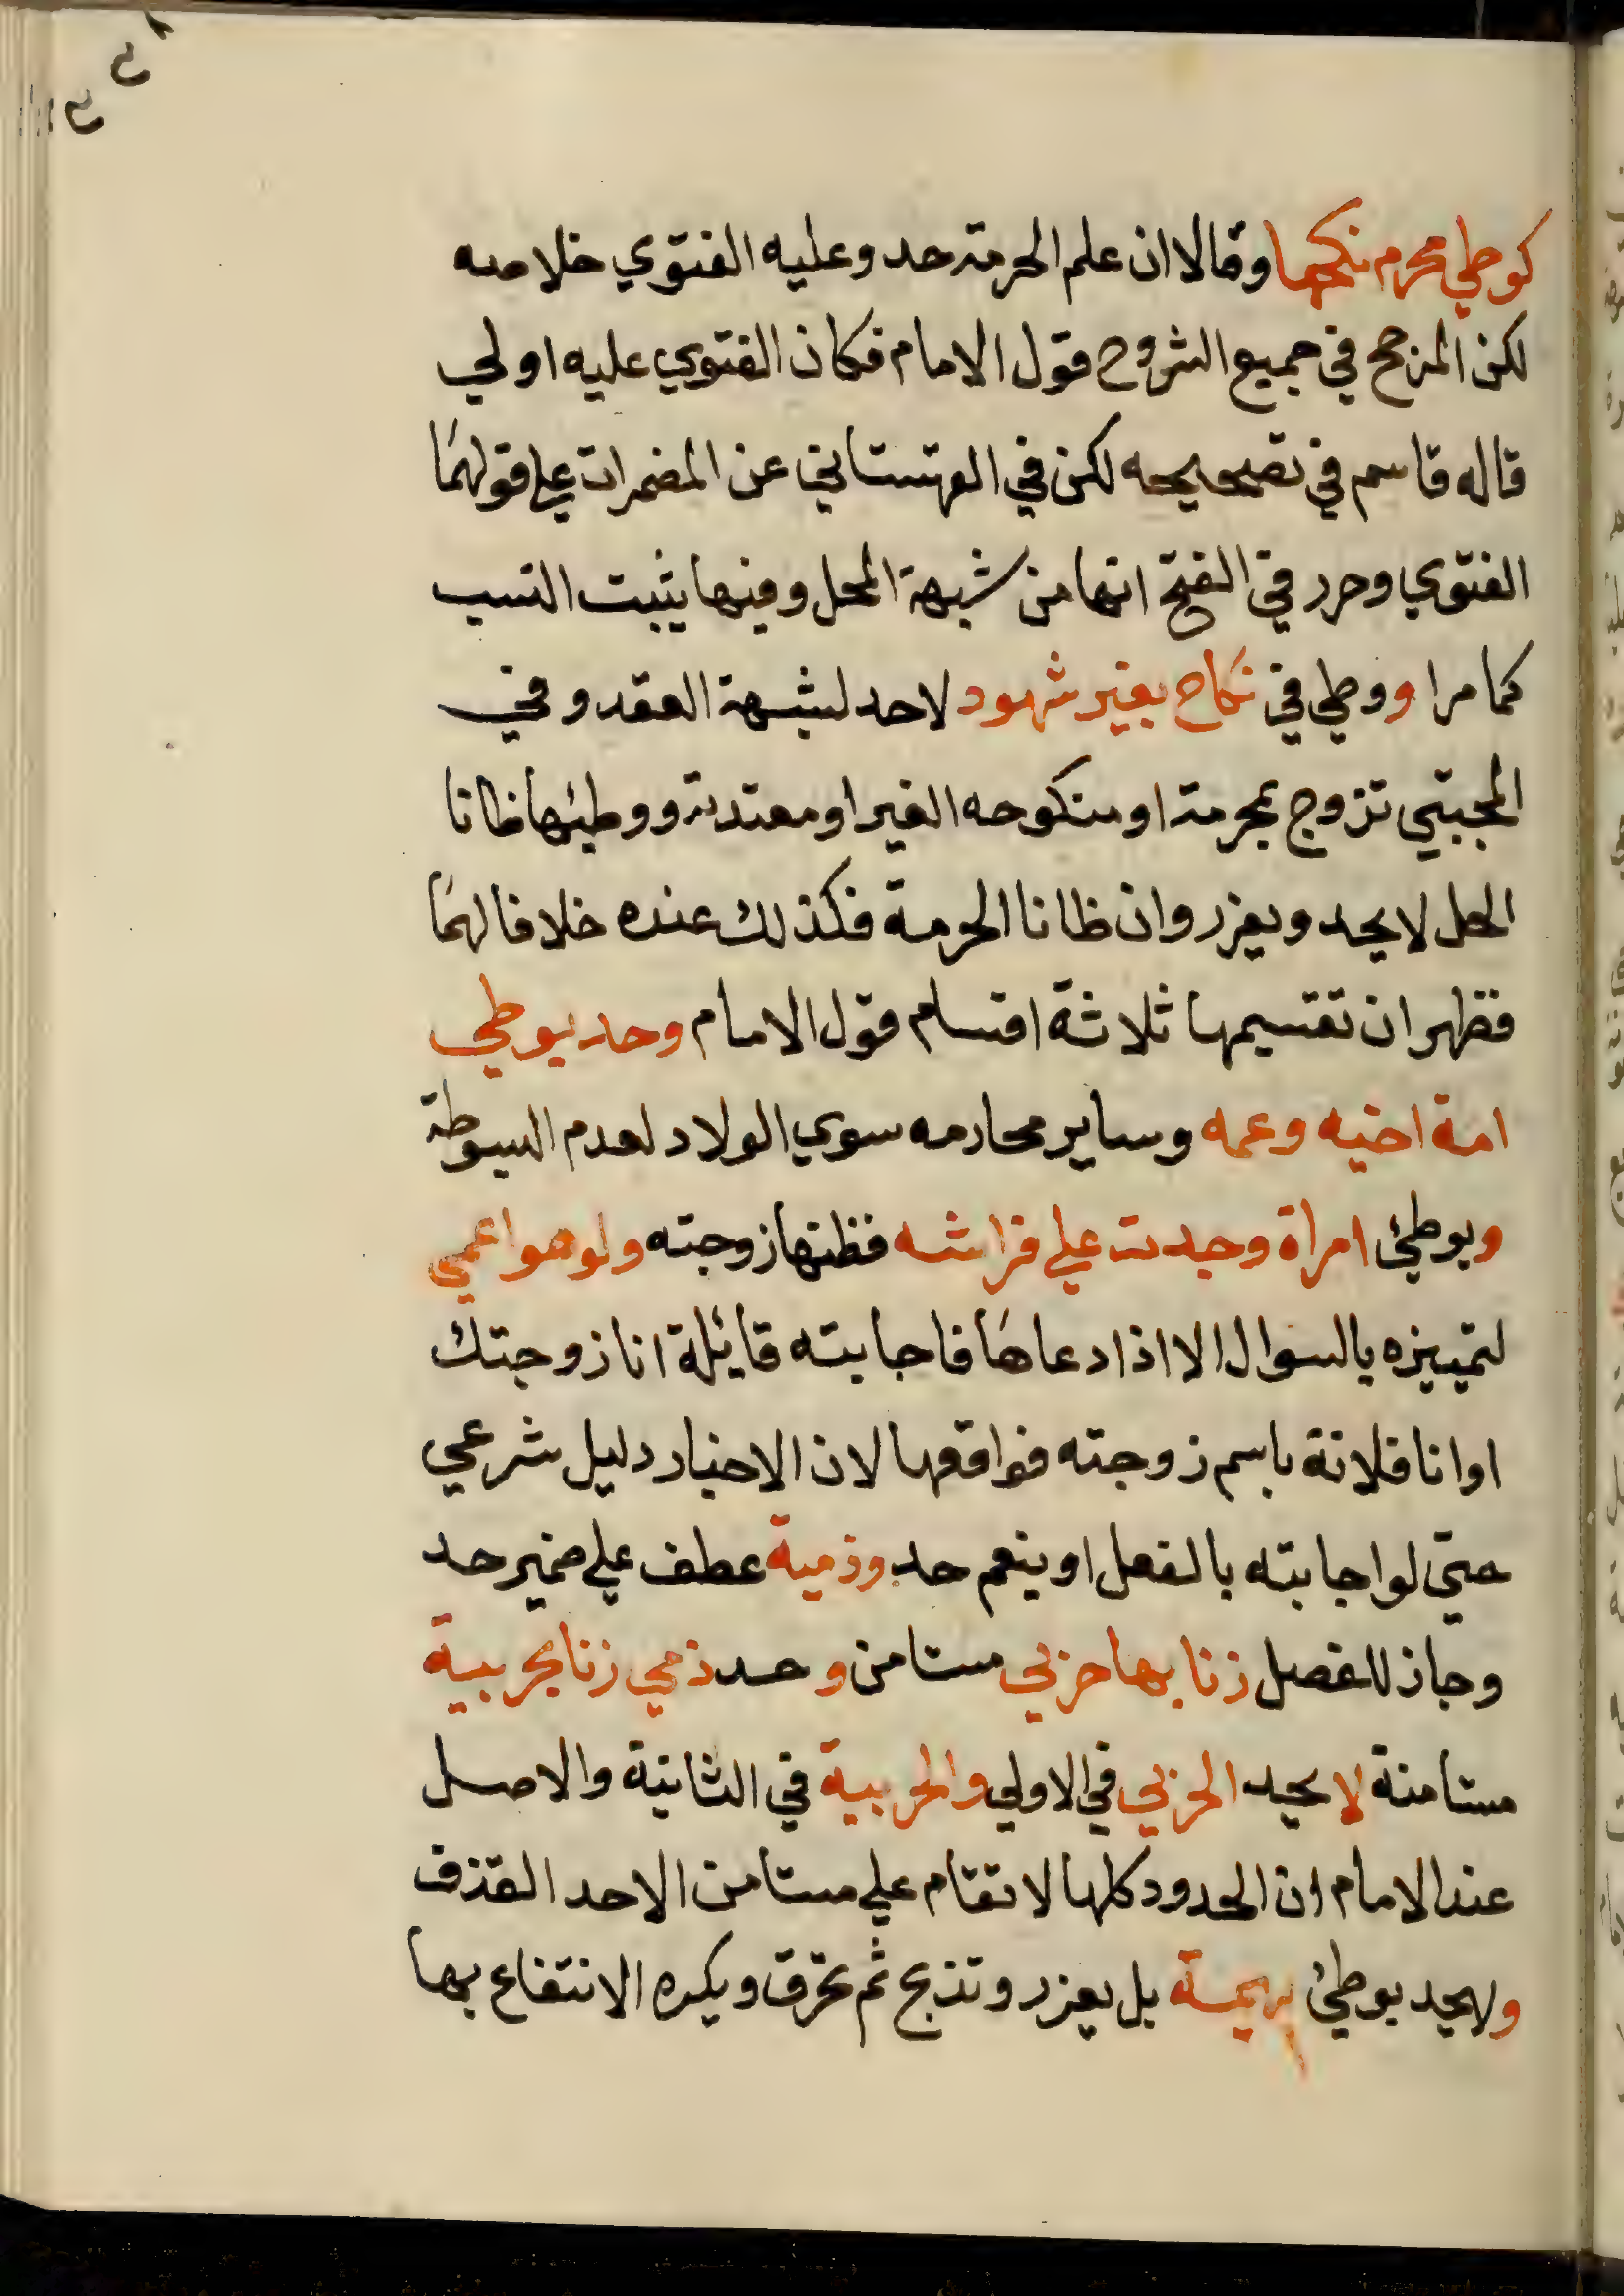 كوطي محرم نكحها وقالا ان علم الحرمة حد وعليه الفتوي خلاصه
لكن المرجح في جميع الشروح قول الامام فكان الفتوي عليه اولي
قاله قاسم في تصحيحه لكن في القهستاني عن المضمرات علي قولهما
الفتوي وحرر في الفتح انها من شبهة المحل وفيها يثبت النسب
كما مر او وطي في نكاح بغير شهود لاحد لشبهة العقد وفي
المجتبي تزوج بمحرمة او منكوحه الغير او معتدته ووطئها ظانا
الحل لا يحد ويعزر وان ظانا الحرمة فكذلك عنده خلافا لهما
فظهر ان تقسيمها ثلاثة اقسام قول الامام وحد بوطي
امة اخيه وعمه وساير محارمه سوي الولاد لعدم البسوطة
وبوطئ امراة وجدت علي فراشه فظنها زوجته ولو هو اعمي
لتمييزه بالسوال الا اذا دعاها فاجابته قائلة انا زوجتك
او انا فلانة باسم زوجته فواقعها لان الاخبار دليل شرعي
حتي لو اجابته بالفعل او بنعم حد وذمية عطف علي ضمير حد
وجاز للفصل زنا بها حربي مستامن وحد ذمي زنا بحربية
مستامنة لا يحد الحربي في الاولي والحربية في الثانية والاصل
عند الامام ان الحدود كلها لا تقام علي مستامن الاحد القذف
ولايحد بوطئ بهيمة بل يعزر وتذبح ثم تحرق ويكره الانتفاع بها